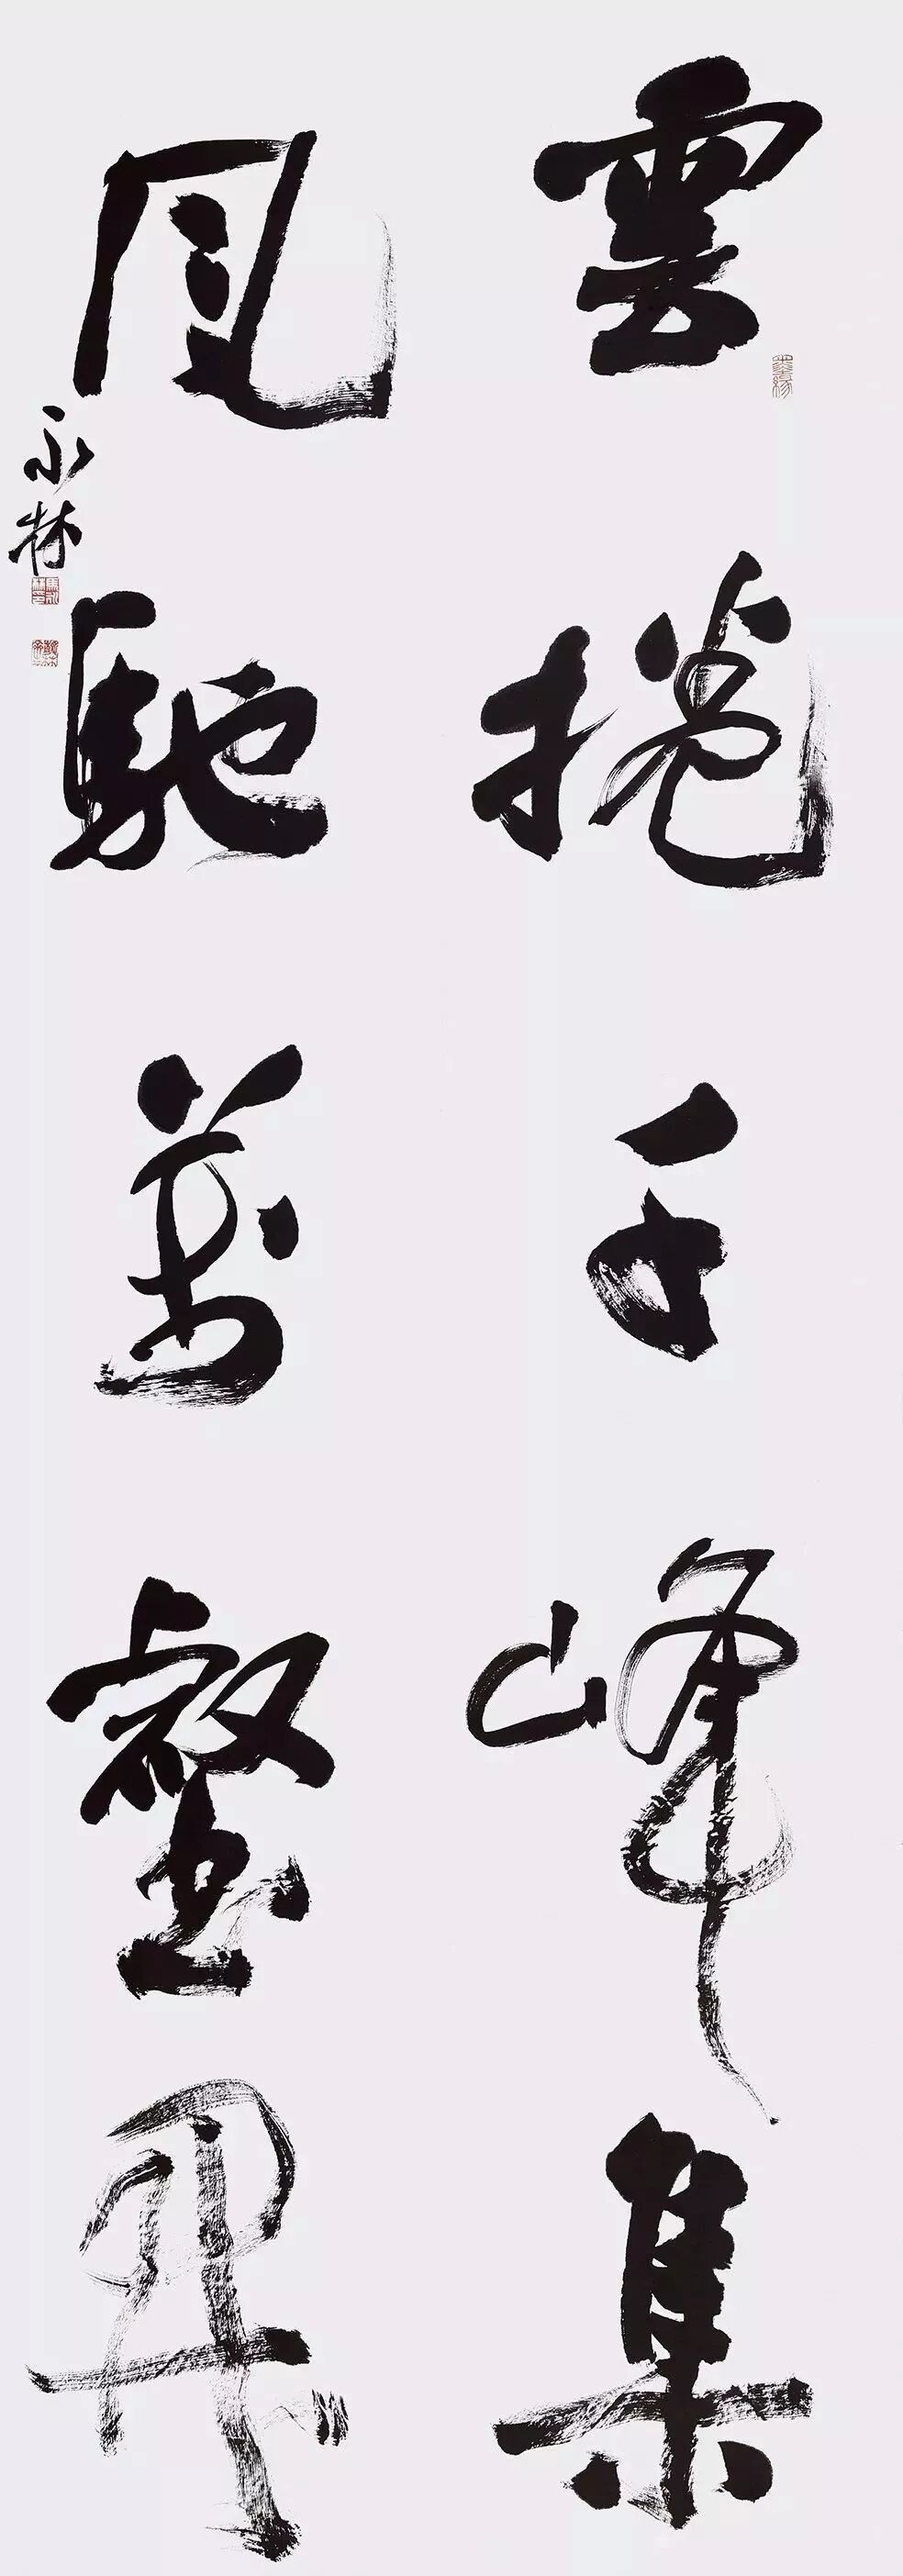 雲捲千峰集
風馳萬壑開
永林